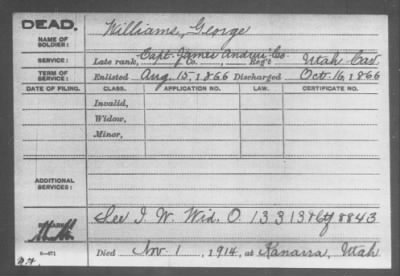 DEAD.
NAME OF SOLDIER: Williams, George
SERVICE: Late rank, Capt. James Andrus' Co. Co., Reg't Utah Cav
TERM OF SERVICE: Enlisted Aug. 15, 1866 Discharged Oct. 16, 1866
DATE OF FILING. CLASS. APPLICATION NO. LAW. CERTIFICATE NO.
Invalid,
Widow,
Minor,
ADDITIONAL SERVICES:
See I. W. Wid. O. 13313 8843
REMARKS:
Died Nov. 1, 1914, at Kanarra, Utah